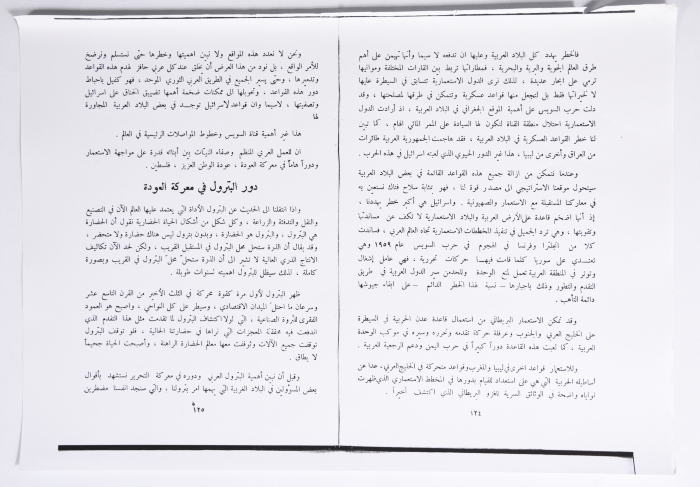 فالخطر يهدد كل البلاد العربية وعليها ان تدفعه لا سيما وأنها تهيمن على أهم
طرق العالم الجوية والبرية والبحرية ، فمطاراتها تربط بين القارات المختلفة وموانيها
ترمي على ابحار عديدة ، لذلك نرى الدول الاستعمارية تتسابق في السيطرة عليها
لا لخيراتها فقط بل لتجعل منها قواعد عسكرية وتتمكن في طرقها لمصلحتها ، وقد
دلت حرب السويس على أهمية الموقع الجغرافي في البلاد العربية ، اذ أرادت الدول
الاستعمارية احتلال منطقة القناة لتكون لها السيادة على الممر المائي الهام ، كما تبين
لنا خطر القواعد العسكرية في البلاد العربية ، فقد هاجمت الجمهورية العربية طائرات
من العراق وأخرى من ليبيا ، هذا غير الدور الحيوي الذي لعبته اسرائيل في هذه الحرب .
وعندما نتمكن من ازالة جميع هذه القواعد القائمة في بعض البلاد العربية
سيتحول موقعنا الاستراتيجي الى مصدر قوة لنا ، فهو بمثابة سلاح فتاك نستعين به
في معاركنا المستقبلة مع الاستعمار والصهيونية . واسرائيل هي أكبر خطر يهددنا ،
إذ أنها اضخم قاعدة على الأرض العربية والبلاد الاستعمارية لا تكف عن مساندتها
وتقويتها ، وهي ترد الجميل في تنفيذ المخططات الاستعمارية تجاه العالم العربي ، فساندت
كلا من انجلترا وفرنسا في الهجوم في حرب السويس عام ١٩٥٩ وهي
تعتدي على سوريا كلما قامت فيهما حركات تحررية ، فهي عامل إشغال
وتوتر في المنطقة العربية تعمل لمنع الوحدة وللحد من سير الدول العربية في طريق
التقدم والتطور وذلك باجبارها – نسبة لهذا الخطر الدائم – على ابقاء جيوشها
دائمة التأهب .
وقد تمكن الاستعمار البريطاني من استعمال قاعدة عدن الحربية في السيطرة
على الخليج العربي والجنوب وعرقلة حركة تقدمه وتحرره وسيره في موكب الوحدة
العربية ، كما لعبت هذه القاعدة دوراً كبيراً في حرب اليمن ودعم الرجعية العربية .
وللاستعمار قواعد اخرى في ليبيا والمغرب وقواعد متحركة في الخليج العربي ، عدا عن
أساطيله الحربية التي هي على استعداد للقيام بدورها في المخطط الاستعماري الذي ظهرت
نواياه واضحة في الوثائق السرية للغزو البريطاني الذي اكتشف أخيراً .
١٢٤
ونحن لا نعدد هذه المواقع ولا نبين اهميتها وخطرها حتى نستسلم ونرضخ
للأمر الواقع ، بل نود من هذا العرض أن نخلق عند كل عربي حافز لهدم هذه القواعد
وتدميرها ، وحتى يسير الجميع في الطريق العربي الثوري الموحد ، فهو كفيل باحباط
دور هذه القواعد ، وتحويلها الى ممكنات ضخمة أهمها تضييق الخناق على اسرائيل
وتصفيتها ، لاسيما وان قواعد لاسرائيل توجد في بعض البلاد العربية المجاورة
لها
هذا غير أهمية قناة السويس وخطوط المواصلات الرئيسية في العالم .
ان للعمل العربي المنظم وصفاء النيات بين أبنائه قدرة على مواجهة الاستعمار
ودوراً هاماً في معركة العودة ، عودة الوطن العزيز ، فلسطين .
دور البترول في معركة العودة
واذا انتقلنا الى الحديث عن البترول الأداة التي يعتمد عليها العالم الآن في التصنيع
والنقل والتدفئة والزراعة ، وكل شكل من أشكال الحياة الحضارية نقول أن الحضارة
هي البترول ، والبترول هو الحضارة ، وبدون بترول ليس هناك حضارة ولا متحضر ،
وقد يقال أن الذرة ستحل محل البترول في المستقبل القريب ، ولكن لحد الآن تكاليف
الانتاج الذري الغالية لا تشير الى أن الذرة ستحل محل البترول في القريب وبصورة
كاملة ، لذلك سيظل للبترول اهميته لسنوات طويلة .
ظهر البترول لأول مرة كقوة محركة في الثلث الأخير من القرن التاسع عشر
وسرعان ما احتل الميدان الاقتصادي ، وسيطر على كل النواحي ، واصبح هو العمود
الفقري للثروة الصناعية ، التي لولا اكتشاف البترول لما تقدمت مثل هذا التقدم الذي
اندفعت فيه محققة المعجزات التي نراها في حضارتنا الحالية ، فلو توقف البترول
توقفت جميع الآلات وتوقفت معها معالم الحضارة الراهنة ، وأصبحت الحياة جحيماً
لا يطاق .
وقبل أن نبين أهمية البترول العربي ودوره في معركة التحرير نستشهد بأقوال
بعض المسؤولين في البلاد الغربية التي يهمها امر بترولنا ، والتي ستجد انفسنا مضطرين
١٢٥